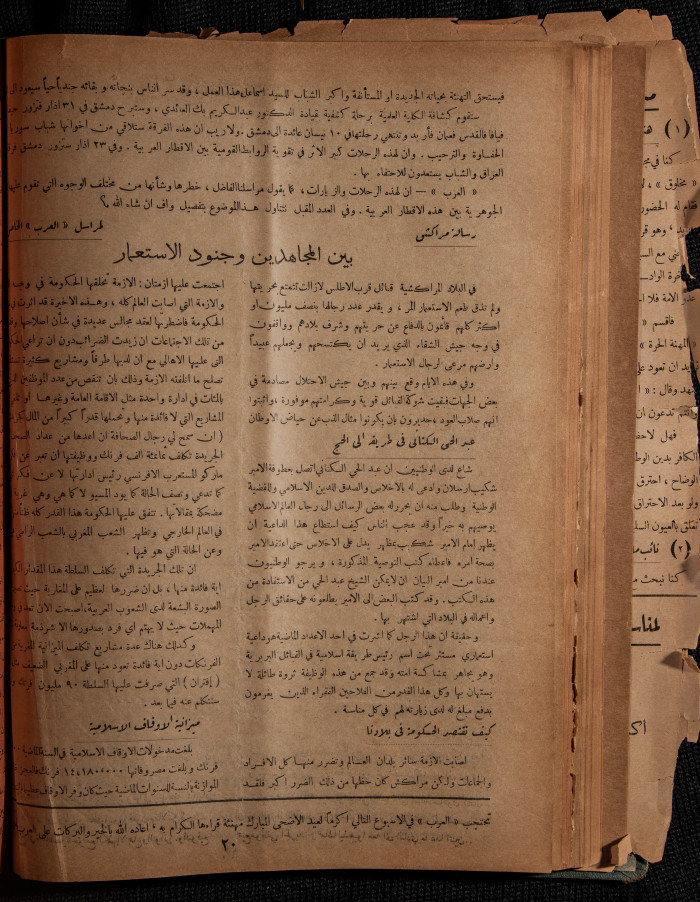 فيستحق التهنئة بحياته الجديدة او المستأنفة واكبر الشباب للسيد اسماعيل هذا العمل ، وقد سر الناس بنجاته و بقائه جندياً حياً سيعود الى
ستقوم كشافة الكلية العلمية برحلة كشفية بقيادة الدكتور عبد الكريم بك العائدي ، وستبرح دمشق في ٣١ اذار فتزور
فيافا فالقدس فعمان فأربد وتنتهي رحلتها في ١٠ نيسان عائدة الى دمشق . ولاريب ان هذه الفرقة ستلاقي من اخوانها شباب
الحفاوة والترحيب . وان لهذه الرحلات كبير الاثر في تقوية الروابط القومية بين الاقطار العربية . وفي ٢٣ اذار ستزور دمشق
العراق والشباب يستعدون للاحتفاء بها .
« العرب » — ان لهذه الرحلات والزيارات ، كما يقول مراسلنا الفاضل ، خطرها وشأنها من مختلف الوجوه التي تقوم عليها
الجوهرية بين هذه الاقطار العربية . وفي العدد المقبل نتناول هذا الموضوع بتفصيل واف ان شاء الله ؟
رسالة مراكش
لمراسل « العرب »
بين المجاهدين وجنود الاستعمار
في البلاد المراكشية قبائل قرب الاطلس لا زالت تتمتع بحريتها
ولم تذق طعم الاستعمار المر ، ويقدر عدد رجالها بنصف مليون او
اكثر كلهم قائمون بالدفاع عن حريتهم وشرف بلادهم وواقفون
في وجه جيش الشقاء الذي يريد ان يكتسحهم ويجعلهم عبيداً
وارضهم مرعى لرجال الاستعمار .
وفي هذه الايام وقع بينهم وبين جيش الاحتلال مصادمة في
بعض الجهات فبقيت شوكة القبائل قوية وكرامتهم موفورة ، واثبتوا
انهم صلاب العود ، جديرون بان يكونوا مثال الذب عن حياض الاوطان
عبد الحي الكتاني في طريقه الى الحج
شاع لدى الوطنيين ان عبد الحي الكتاني اتصل بعطوفة الامير
شكيب ارسلان وادعى له بالاخلاص والصدق للدين الاسلامي وللقضية
الوطنية وطلب منه ان يحرر له بعض الرسائل الى رجال العالم الاسلامي
يوصيهم به خيراً وقد عجب الناس كيف استطاع هذا الداعية ان
يظهر امام الامير شكيب بمظهر يدل على الاخلاص حتى اعتقد الامير
بصحة امره فاعطاه كتب التوصية المذكورة ، و يرجو الوطنيون
عندنا من امير البيان ان لا يمكن الشيخ عبد الحي من الاستفادة من
هذه الكتب . وقد كتب البعض الى الامير يطالعونه على حقائق الرجل
واعماله في البلاد التي اشتهر بها .
وحقيقة ان هذا الرجل كما اشرت في احد الاعداد الماضية هو داعية
استعماري مستتر تحت اسم رئيس طريقة اسلامية في القبائل البربرية
وهو يجاهر بمشاكسة امته وقد جمع من هذه الوظيفة ثروة طائلة لا
يستهان بها وكل هذا القدر من الفلاحين الفقراء الذين يغرمون
بدفع مبلغ له لدى زيارته لهم في كل مناسبة .
كيف تقتصر الحكومة في بلادنا
اصابت الازمة سائر بلدان العالم وتضرر منها كل الافراد
والجماعات ولكن مراكش كان حظها من ذلك الضرر اكبر فلقد
اجتمعت عليها ازمتان : الازمة تخلقها الحكومة في
والازمة التي اصابت العالم كله ، وهذه الاخيرة قد اثرت
الحكومة فاضطرتها لعقد مجالس عديدة في شأن اصلاحها
من تلك الاجتماعات ان زيدت الضرائب دون ان تراعي
التي عليها الاهالي مع ان لديها طرقاً ومشاريع كثيرة
تصلح ما اتلفته الازمة وذلك بان تنقص من عدد الموظفين
بالمئات في ادارة واحدة مثل الاقامة العامة وغيرها او
المشاريع التي لا فائدة منها وتحملها قدراً كبيراً من المال
( ان سمح لي رجال الصحافة ان اعدها من عداد
الجريدة تكلف ثمانمئة الف فرنك ووظيفتها ان تعبر عن
ماركو المستعرب الافرنسي رئيس ادارتها لا عن
كما تدعي وتصف الحالة كما يود المسيو لا كما هي وهي
مضحكة بمقالاتها . تنفق عليها الحكومة هذا القدر كله
في العالم الخارجي وتظهر الشعب المغربي بالشعب الراضي
وعن الحالة التي هو فيها .
ان تلك الجريدة التي تكلف السلطة هذا المقدار
اية فائدة منها ، بل ان ضررها لعظيم على المغاربة حيث
الصورة البشعة لدى الشعوب العربية ، اصبحت الان
المهملات حيث لا يهتم اي فرد بصدورها الا شرذمة
وكذلك هناك عدة مشاريع تكلف الميزانية المغربية
الفرنكات دون اية فائدة تعود منها على المغربي الضعيف
( إفتران ) التي صرفت عليها السلطة ٩٠ مليون فرنك
سنتكلم عنه فيما بعد .
ميزانية الاوقاف الاسلامية
بلغت مدخولات الاوقاف الاسلامية في السنة الماضية
فرنك وبلغت مصروفاتها ١٤،١٨٠٠٠٠٠ فرنك
الموازنة بالنسبة للسنوات الماضية حيث كان وفر الاوقاف
تحتجب « العرب » في الاسبوع التالي اكراماً لعيد الاضحى المبارك مهنئة قراءها الكرام به ، اعاده الله بالخير والبركات على العرب
٢٠
(١)
« مخلوق » ،
فقام له الحضور
فاقسم «
« المهنة الحرة »
وقال : «
فهل لاحظ
الكافر بدين
الوضاح ، احترق
ولو بعد الاحتراق
تغلق بالعيون
(٢) نائب
كنا نبحث